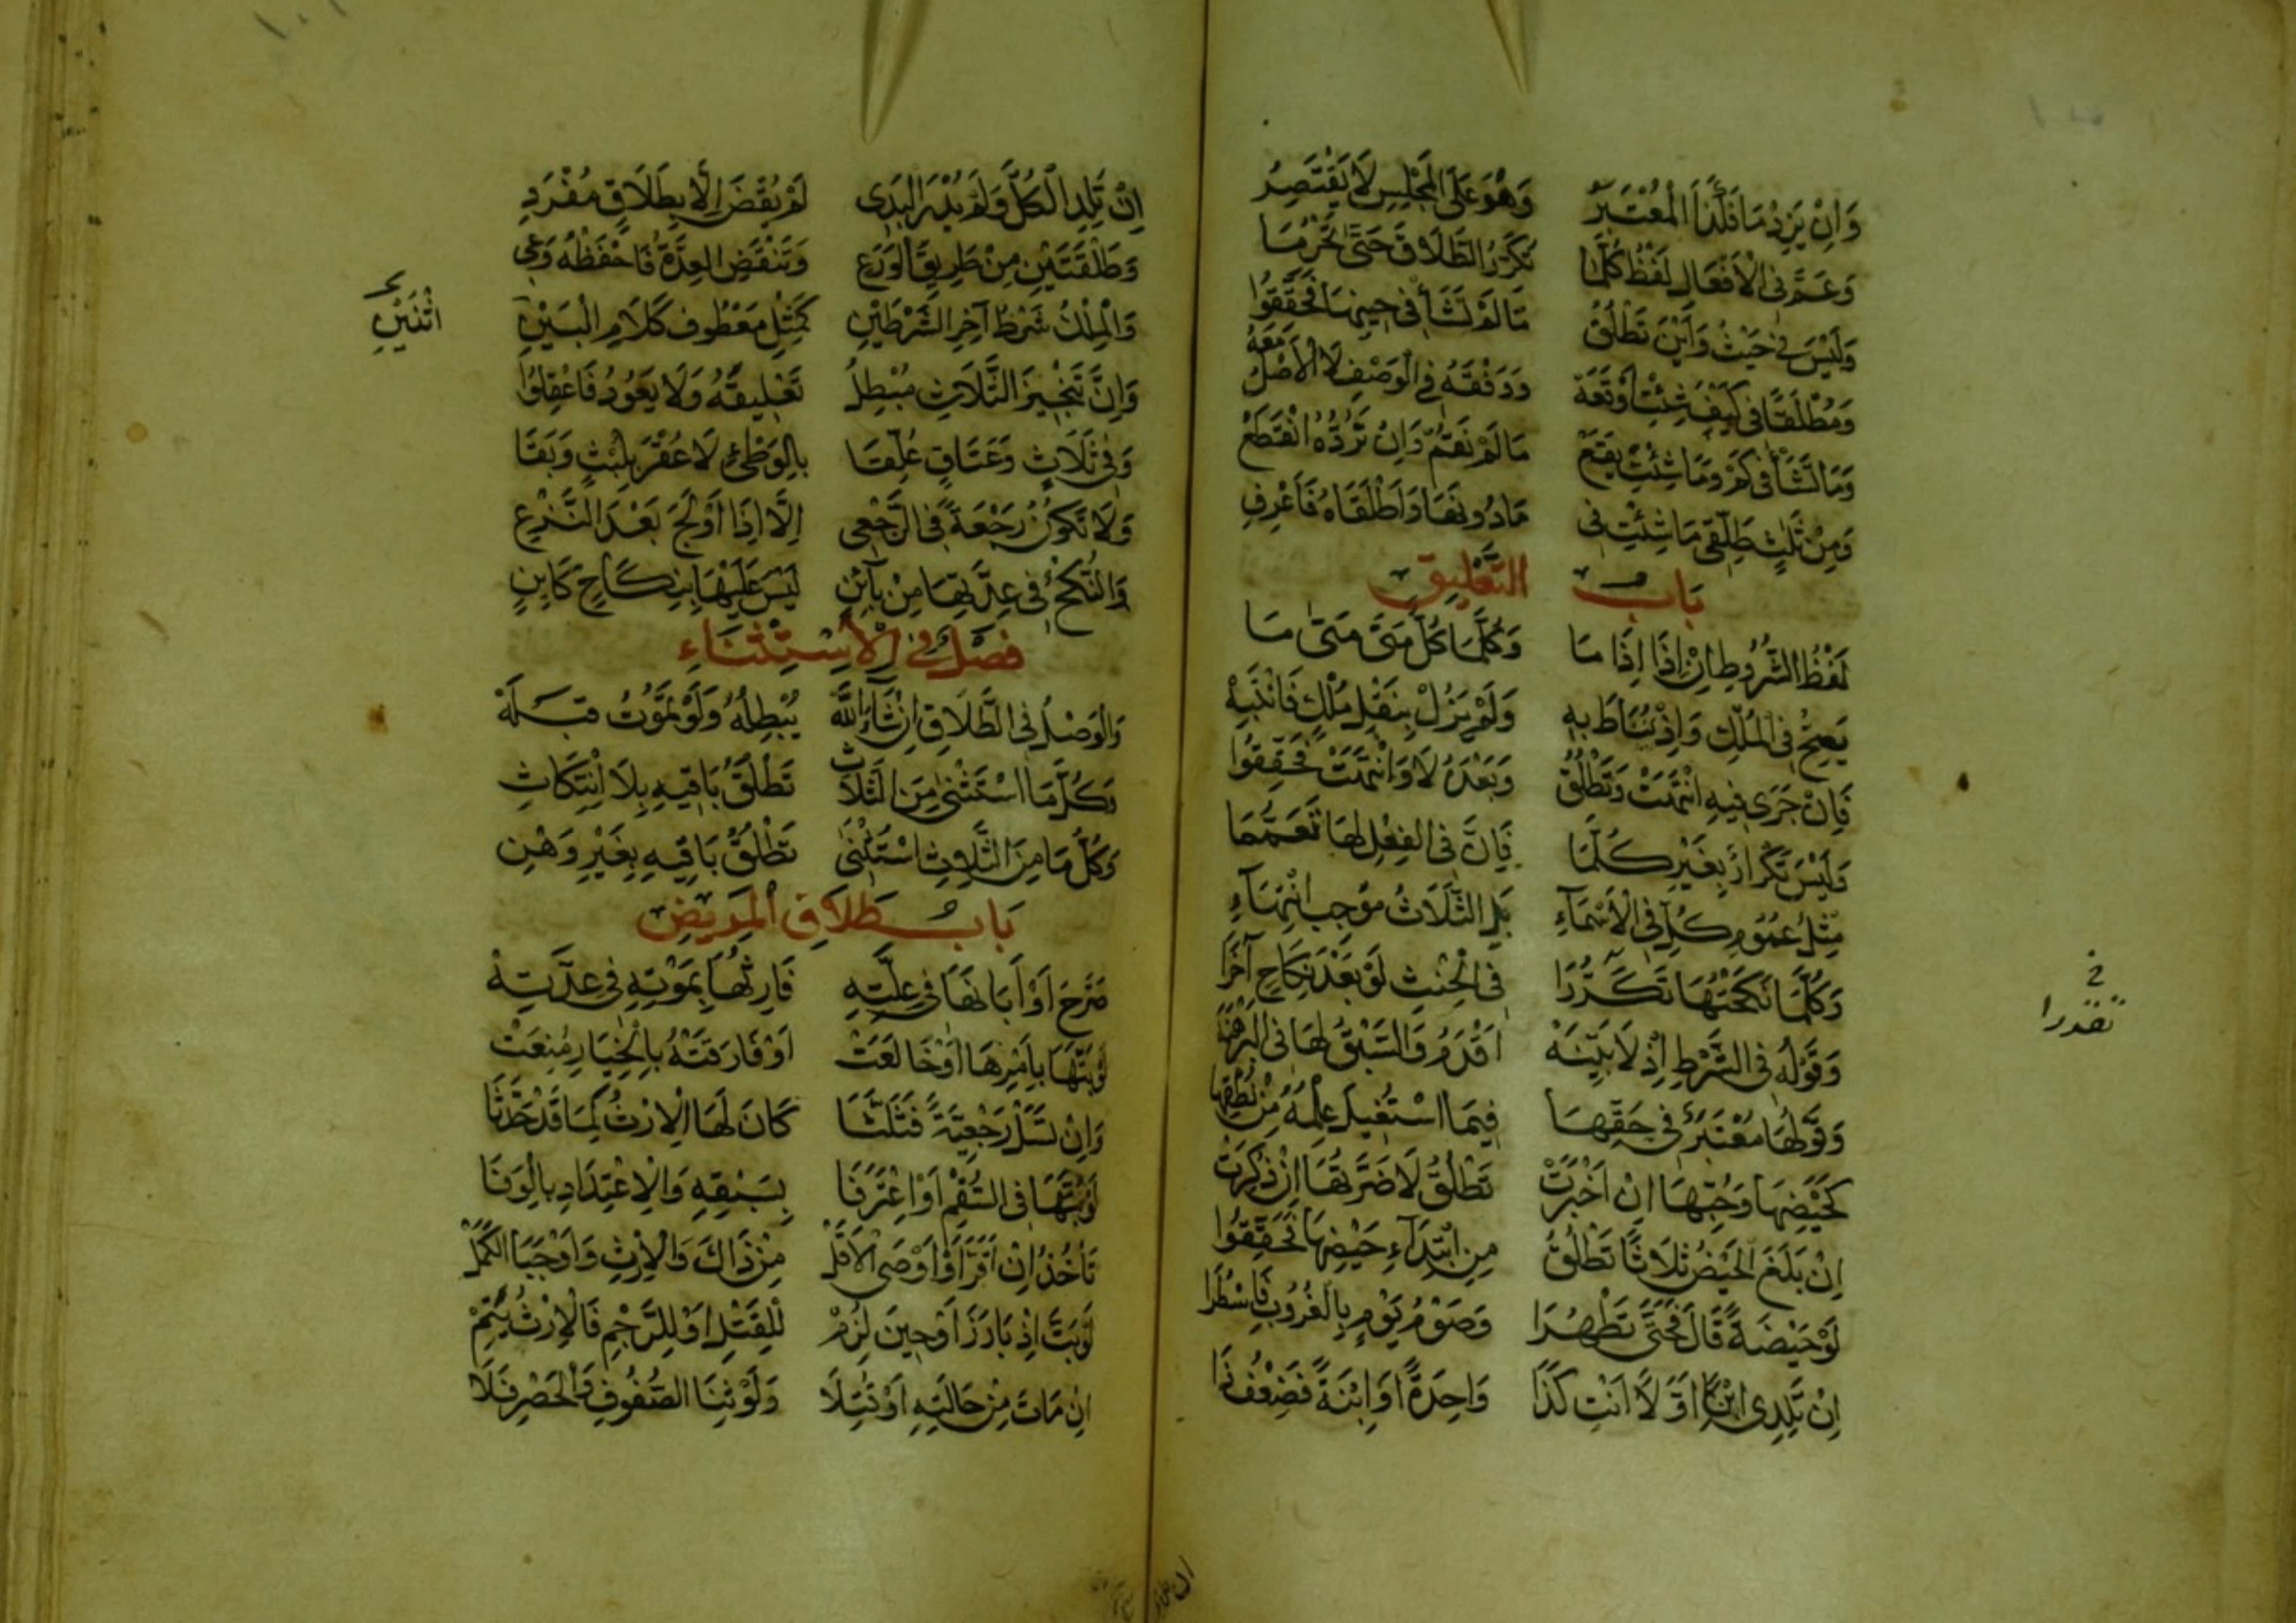 وَاِنْ يَزِدْ مَا فَلِذَا الْمُعْتَبَرُ وَهُوَ عَلَى الْمَجْلِسِ لَا يَقْتَصِرُ
وَعَمَّ فِي الْاَفْعَالِ لَفْظُ كُلَّمَا تُكَرِّرُ الطَّلَاقَ حَتّٰى تَحْرُمَا
وَلَيْسَ فِي حَيْثُ وَاَيْنَ تَطْلُقُ مَا لَمْ تَشَأْ فِي حِينِهَا فَحَقِّقُوا
وَمُطْلَقًا فِي كَيْفَ شِئْتِ اَوْقَعَهْ فِي الْوَصْفِ لَا الْاَصْلُ مَعَهُ
وَمَا تَشَأْ فِي كَمْ وَمَا شِئْتِ يَقَعْ مَا لَمْ تَقُمْ وَاِنْ تَرُدَّهُ انْقَطَعْ
وَمِنْ ثَلٰثٍ طَلِّقِي مَا شِئْتِ فِي مَا دُونَهَا وَاَطْلَقَاهُ فَاعْرِفِ
بَابُ التَّعْلِيقِ
لَفْظُ الشُّرُوطِ اِنْ اِذَا اِذَا مَا وَكُلَّمَا كُلُّ مَتٰى مَتٰى مَا
يَصِحُّ فِي الْمُلْكِ وَاِذْ يُنَاطَ بِهِ وَلَمْ يَزُلْ بِنَقْلِ مُلْكٍ فَانْتَبِهْ
فَاِنْ جَرٰى فِيهِ انْتَهَتْ وَتَطْلُقُ وَبَعْدَهُ لَا وَانْتَهَتْ فَحَقِّقُوا
وَلَيْسَ تَكْرَارٌ بِغَيْرِ كُلَّمَا فَاِنَّ فِي الْفِعْلِ لَهَا تَعَمُّمَا
مِثْلُ عُمُومِ كُلٍّ فِي الْاَسْمَاءِ بَلِ الثَّلَاثُ مُوجِبُ انْتِهَاءِ
وَكُلَّمَا نَكَحْتُهَا تَكَرَّرَا فِي الْحِنْثِ لَوْ بَعْدَ نِكَاحِ آخَرَا
وَقَوْلُهُ فِي الشَّرْطِ اِذْ لَا بَيِّنَهْ اَقْدَمُ وَالسَّبْقُ لَهَا فِي
وَقَوْلُهَا مُعْتَبَرٌ فِي حَقِّهَا فِيمَا اسْتُفِيدَ عِلْمُهُ مِنْ نُطْقِهَا
كَحَيْضِهَا وَحُبِّهَا اِنْ اَخْبَرَتْ تَطْلُقُ لَا ضَرَّتُهَا اِنْ ذُكِرَتْ
اِنْ بَلَغَ الْحَيْضُ ثَلَاثًا تَطْلُقُ مِنِ ابْتِدَاءِ حَيْضِهَا فَحَقِّقُوا
لَوْ حَيْضَةً قَالَ فَحَتّٰى تَطْهُرَا وَصَوْمُ يَوْمٍ بِالْغُرُوبِ فَاسْطُرَا
اِنْ تَلِدِي ابْنًا اَوَّلًا اَنْتِ كَذَا وَاحِدَةً اَوِ ابْنَةً فَضِعْفُ ذَا
اِنْ تَلِدِ الْكُلَّ وَلَمْ يُدْرَ الْبَدِي لَمْ يُقْضَ اِلَّا بِطَلَاقٍ مُفْرَدِ
وَطَلْقَتَيْنِ مِنْ طَرِيقِ الْوَرَعِ وَتَنْقَضِ الْعِدَّةُ فَاحْفَظْهُ وَعِي
وَالْمِلْكُ شَرْطٌ آخِرِ الشَّرْطَيْنِ كَمِثْلِ مَعْطُوفِ كَلَامِ الْبَيْنِ
وَاِنَّ تَنْجِيزَ الثَّلَاثِ مُبْطِلُ تَعْلِيقَهُ وَلَا يَعُودُ فَاعْقِلُوا
وَفِي ثَلَاثٍ وَعَتَاقٍ عُلِّقَا بِالْوَطْئِ لَا عُقْرَ بِلُبْثٍ وَبَقَا
وَلَا تَكُونُ رَجْعَةً فِي الرَّجْعِي اِلَّا اِذَا اَوْلَجَ بَعْدَ النَّزْعِ
وَالنُّكْحُ فِي عِدَّتِهَا مِنْ بَائِنِ لَيْسَ عَلَيْهَا بِنِكَاحٍ كَايِنِ
فَصْلٌ فِي الْاِسْتِثْنَاءِ
وَالْوَصْلُ فِي الطَّلَاقِ اِنْ شَاءَ اللّٰهُ يُبْطِلُهُ وَلَوْ تَمُوتُ قَبْلَهْ
وَكُلَّمَا اسْتَثْنٰى مِنَ الثَّلَاثِ تَطْلُقُ بَاقِيهِ بِلَا انْتِكَاثِ
وَكُلُّ مَا مِنَ الثَّلٰثِ اسْتَثْنٰى تَطْلُقُ بَاقِيهِ بِغَيْرِ وَهْنٍ
بَابُ طَلَاقِ الْمَرِيضِ
صَرَّحَ اَوْ اَبَانَهَا فِي عِلَّتِهِ فَارِثُهَا بِمَوْتِهِ فِي عِدَّتِهْ
لَوْ بَتَّهَا بِاَمْرِهَا اَوْ خَالَعَتْ اَوْ فَارَقَتْهُ بِالْخِيَارِ مُنِعَتْ
وَاِنْ تَسَلْ رَجْعِيَّةً فَثَلَّثَا كَانَ لَهَا الْاِرْثُ لِمَا قَدْ حَدَثَا
لَوْ بَتَّهَا فِي السُّقْمِ اَوِ اعْتَرَفَا بِسَبْقِهِ وَالْاِعْتِدَادِ بِالْوَفَا
تَأْخُذُ اِنْ اَقَرَّ اَوْ اَوْصٰى الْاَقَلْ مِنْ ذَاكَ وَالْاِرْثِ وَاَوْجَبَا الْكَمَلْ
لَوْ بَتَّ اِذْ بَارَزَ اَوْ حِينَ لَزِمْ لِلْقَتْلِ اَوْ لِلرَّجْمِ فَالْاِرْثُ يَتِمْ
اِنْ مَاتَ مِنْ حَالَتِهِ اَوْ قُتِلَا وَلَوْ ثِنَا الصُّفُوفِ وَالْحَصْرِ فَلَا
اثْنَيْنِ